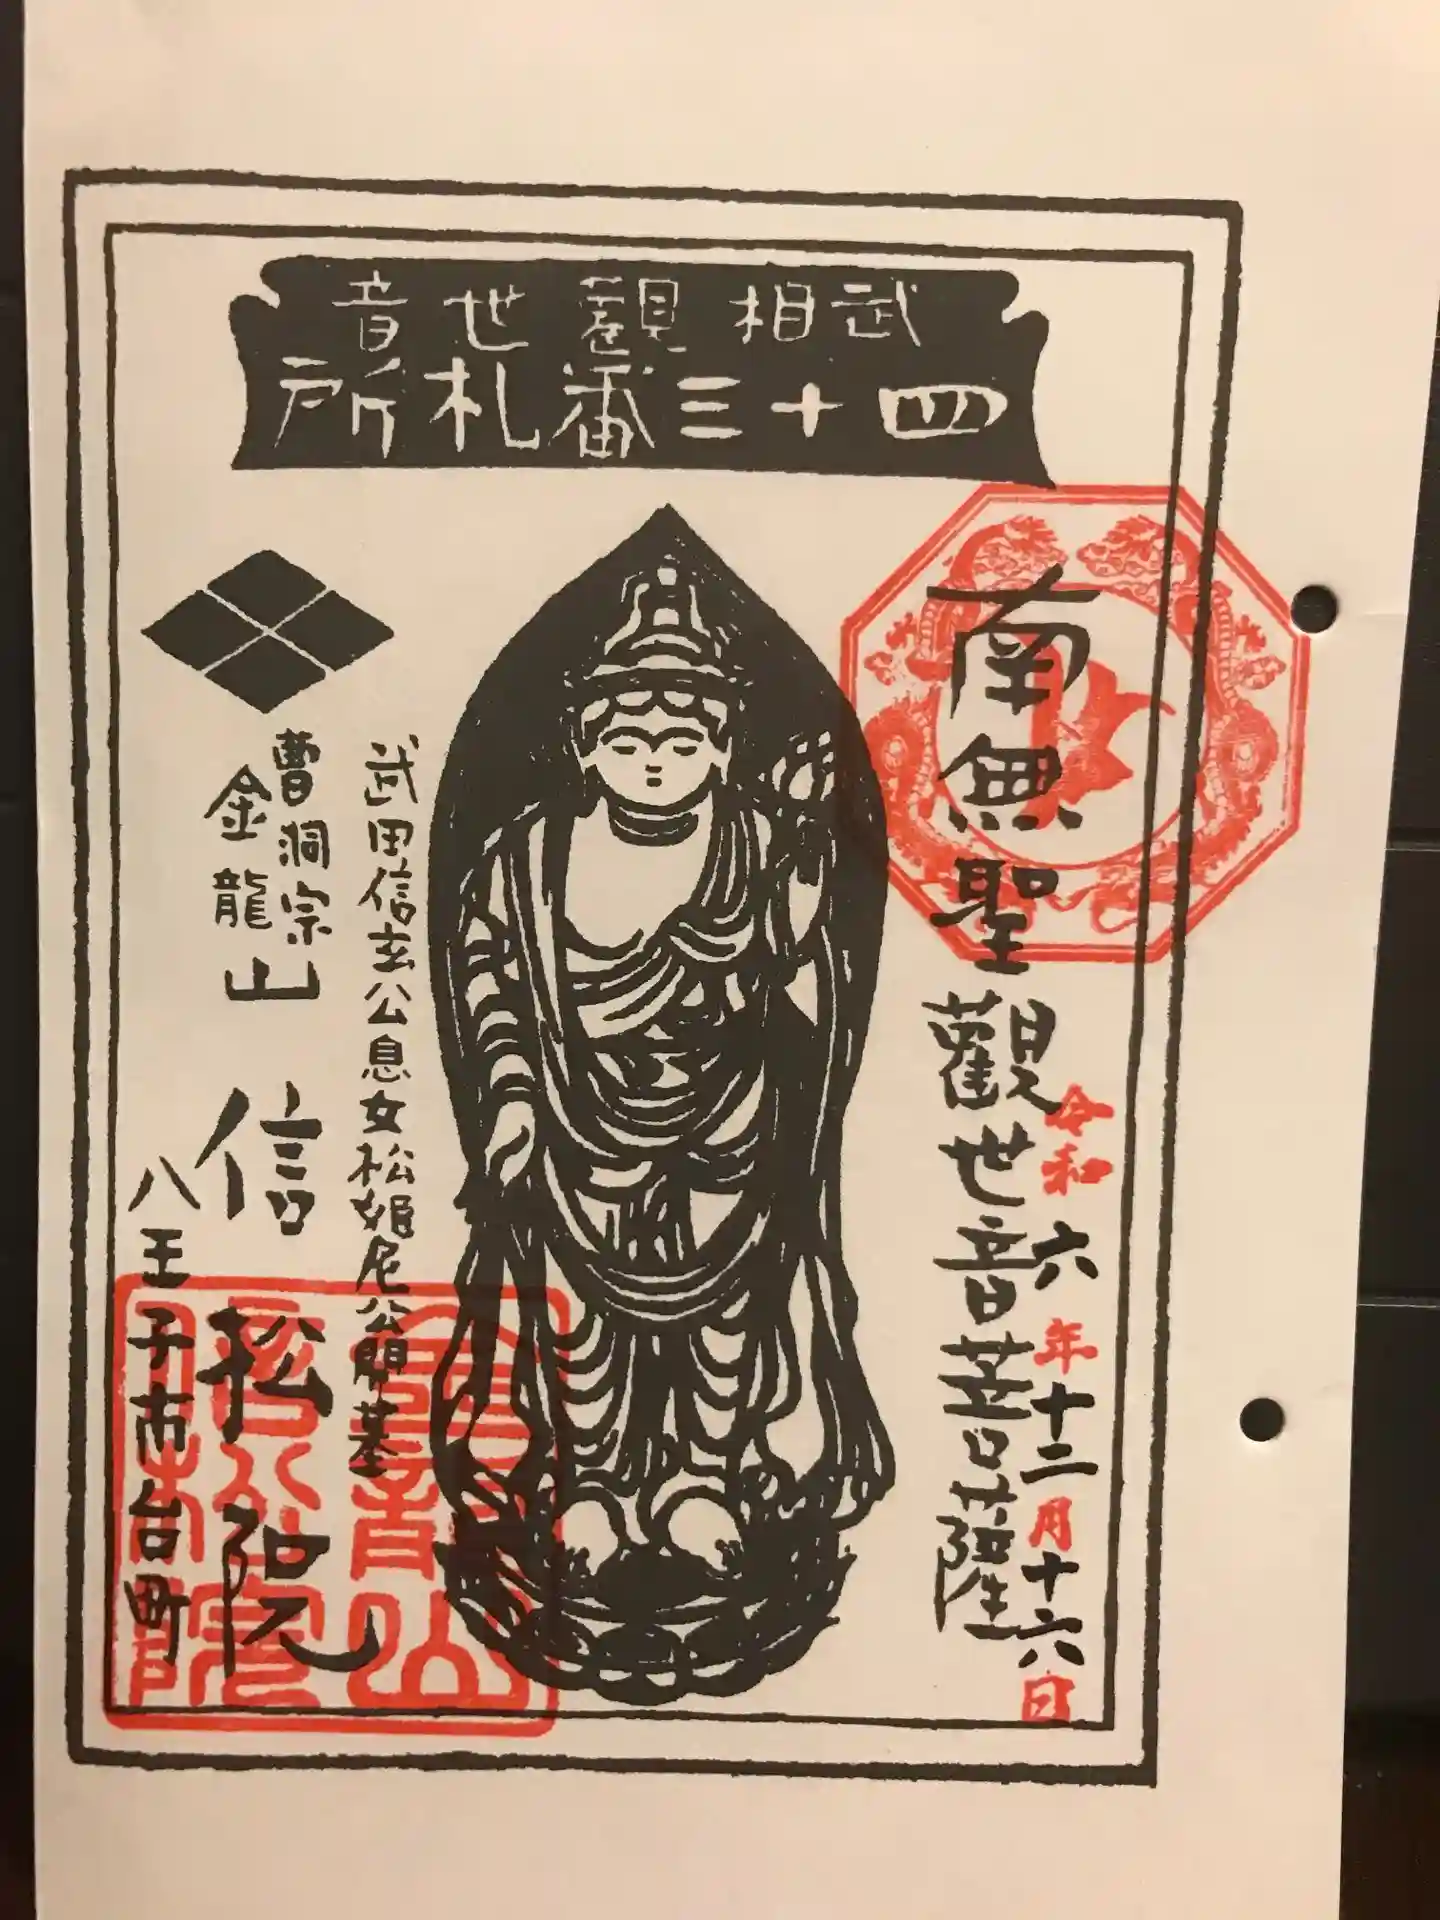 武相觀世音
四十三番札所
南無聖觀世音菩薩
令和六年十二月十六日
武田信玄公息女松姫尼公開基
曹洞宗
金龍山
信松院
八王子市台町